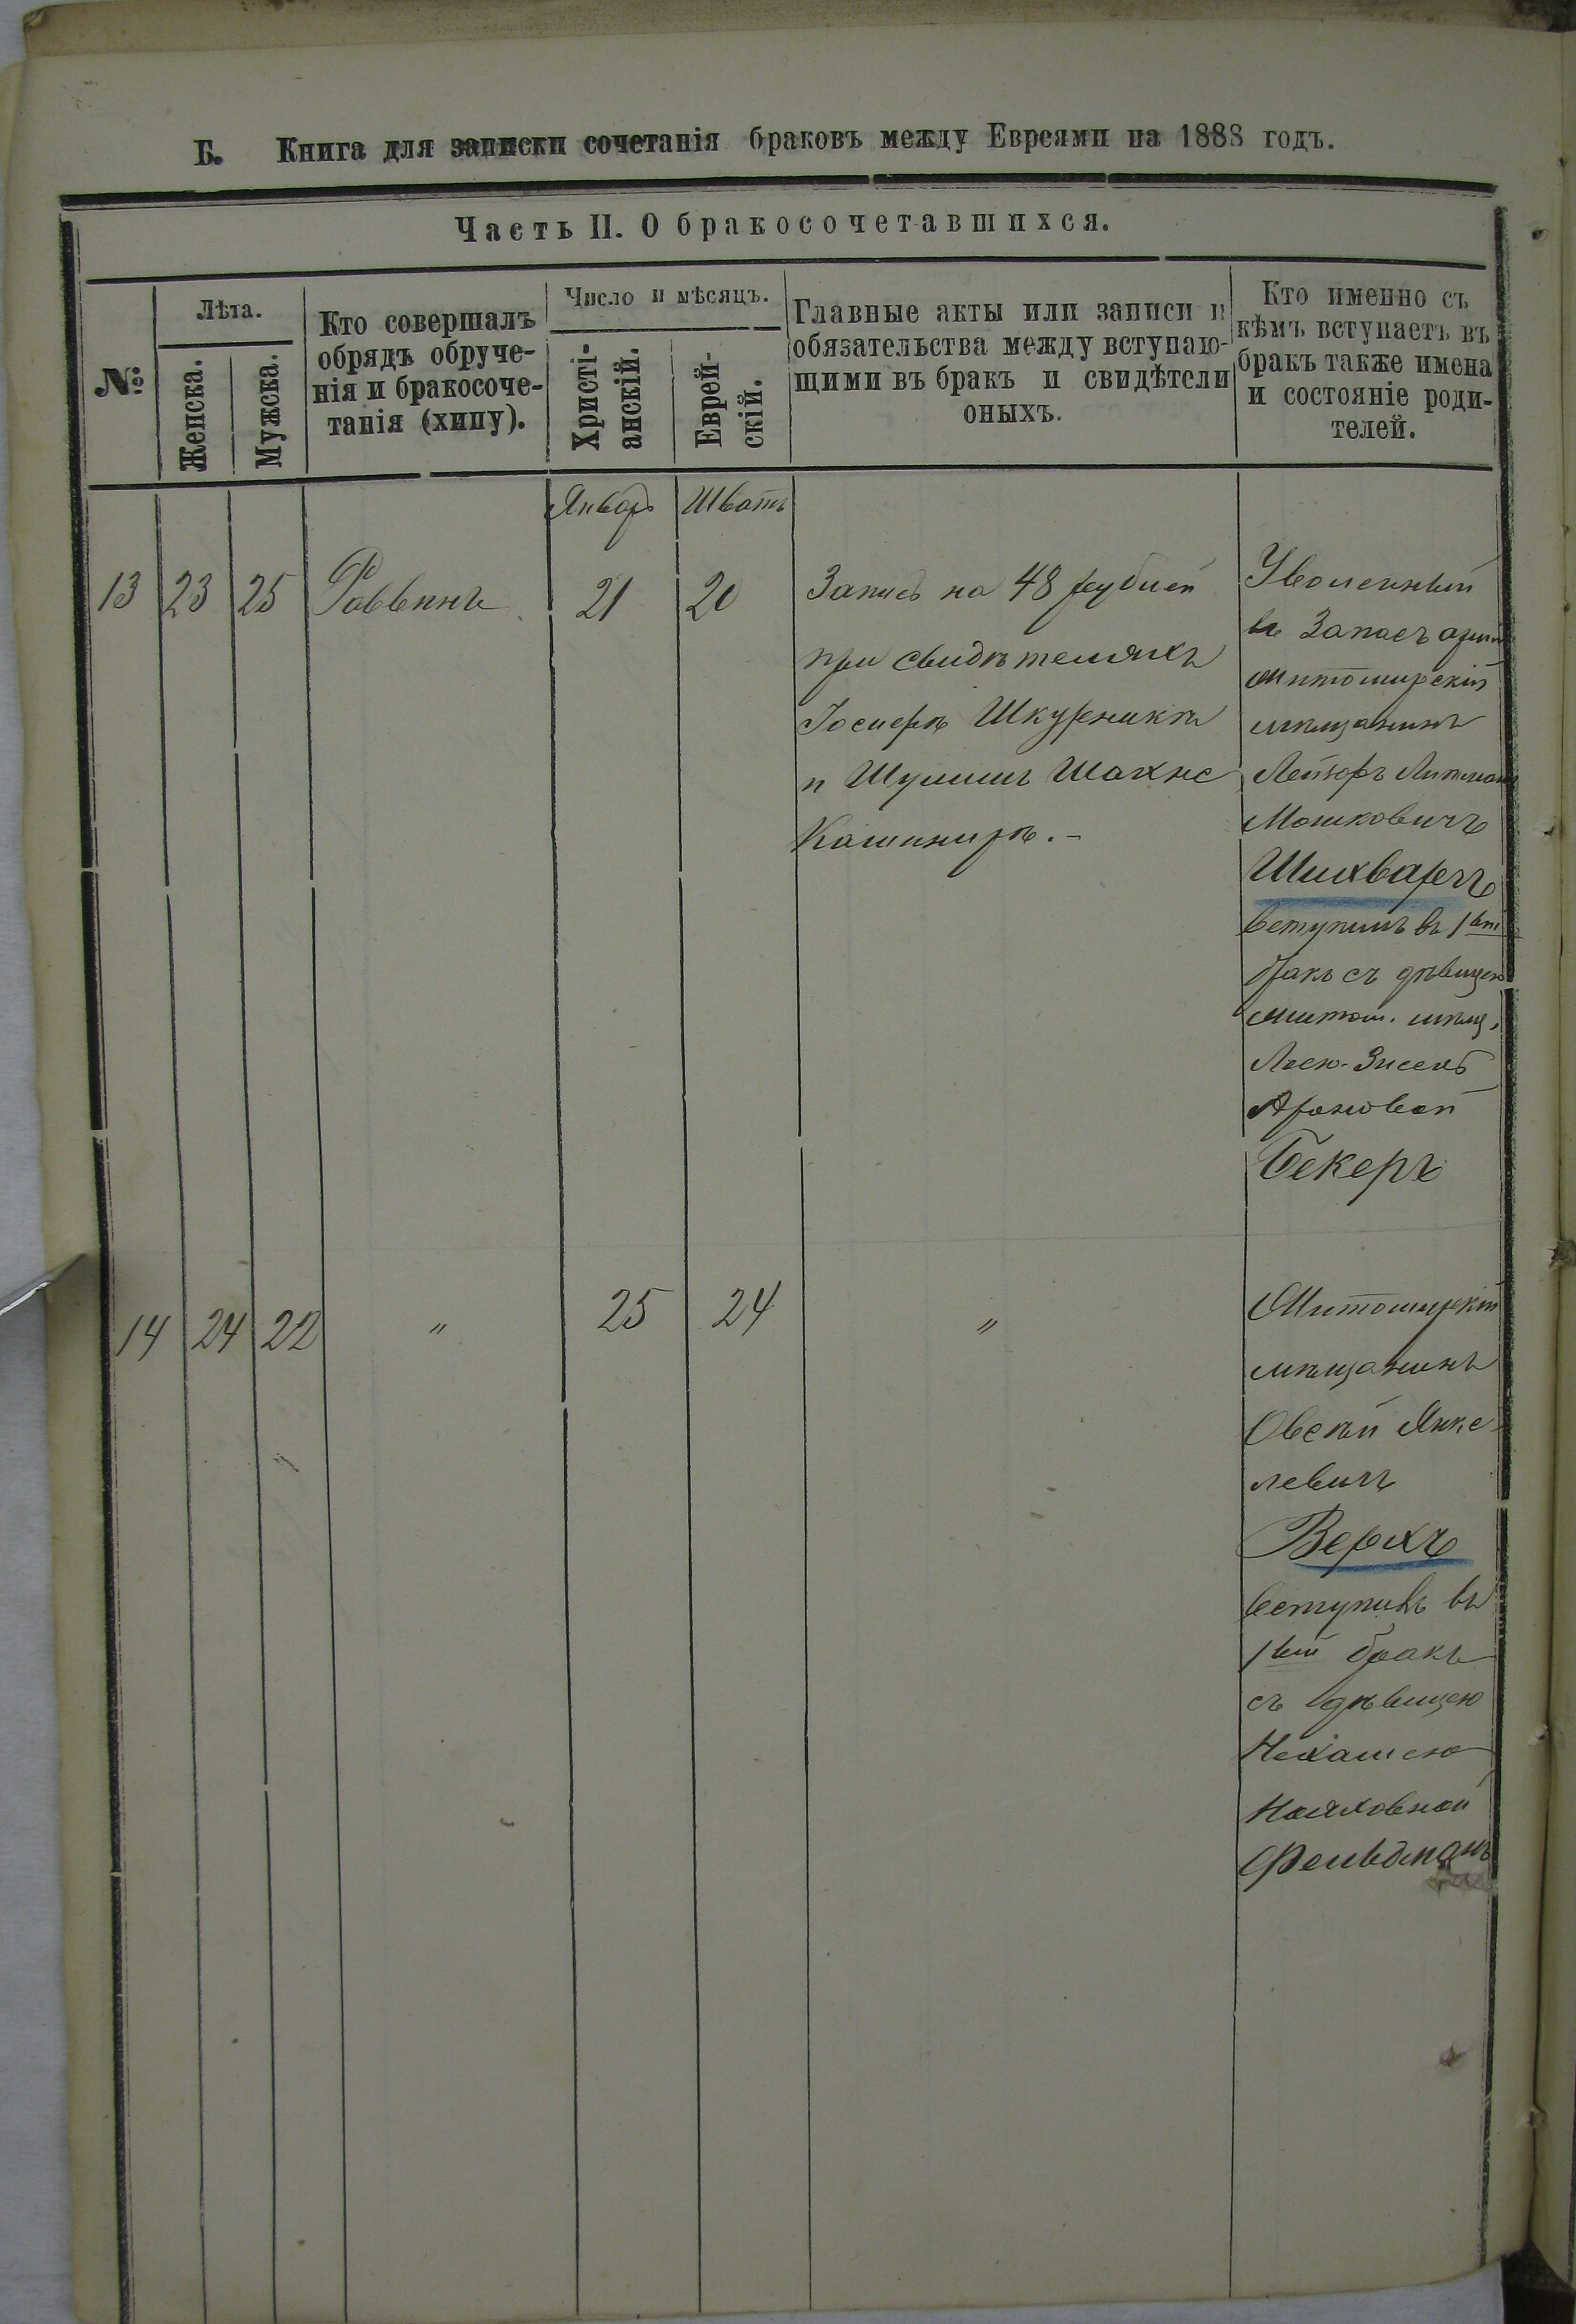 Б. Книга для записки сочетанія браковъ между Евреями на 1888 годъ.
Часть II. О бракосочетавшихся.
№
Лѣта.
Женска.
Мужска.
Кто совершалъ
обрядъ обруче-
нія и бракосоче-
танія (хипу).
Число и мѣсяцъ.
Христі-
анскій.
Еврей-
скій.
Главные акты или записи и
обязательства между вступаю-
щими въ бракъ и свидѣтели
оныхъ.
Кто именно съ
кѣмъ вступаетъ въ
бракъ также имена
и состояніе роди-
телей.
Январь Шватъ
13 23 25 Раввинъ 21 20
Запись на 48 рублей
при свидѣтеляхъ
Іосиферъ Шкурникъ
и Шулимъ Шахне
Кашниръ.-
Уволенный
въ Запасъ арміи
Житомирскій
мѣщанинъ
Лейзоръ Липман
Мошковичъ
Шихварчъ
вступилъ въ 1вый
бракъ съ дѣвицею
житом. мѣщ.
Лею-Зисель
Ароновой
Бекеръ
14 24 22 " 25 24 "
Житомирскій
мѣщанинъ
Овсѣй Янке
левичъ
Верхъ
вступилъ въ
1вый бракъ
съ дѣвицею
Нехамею
Фельдманъ